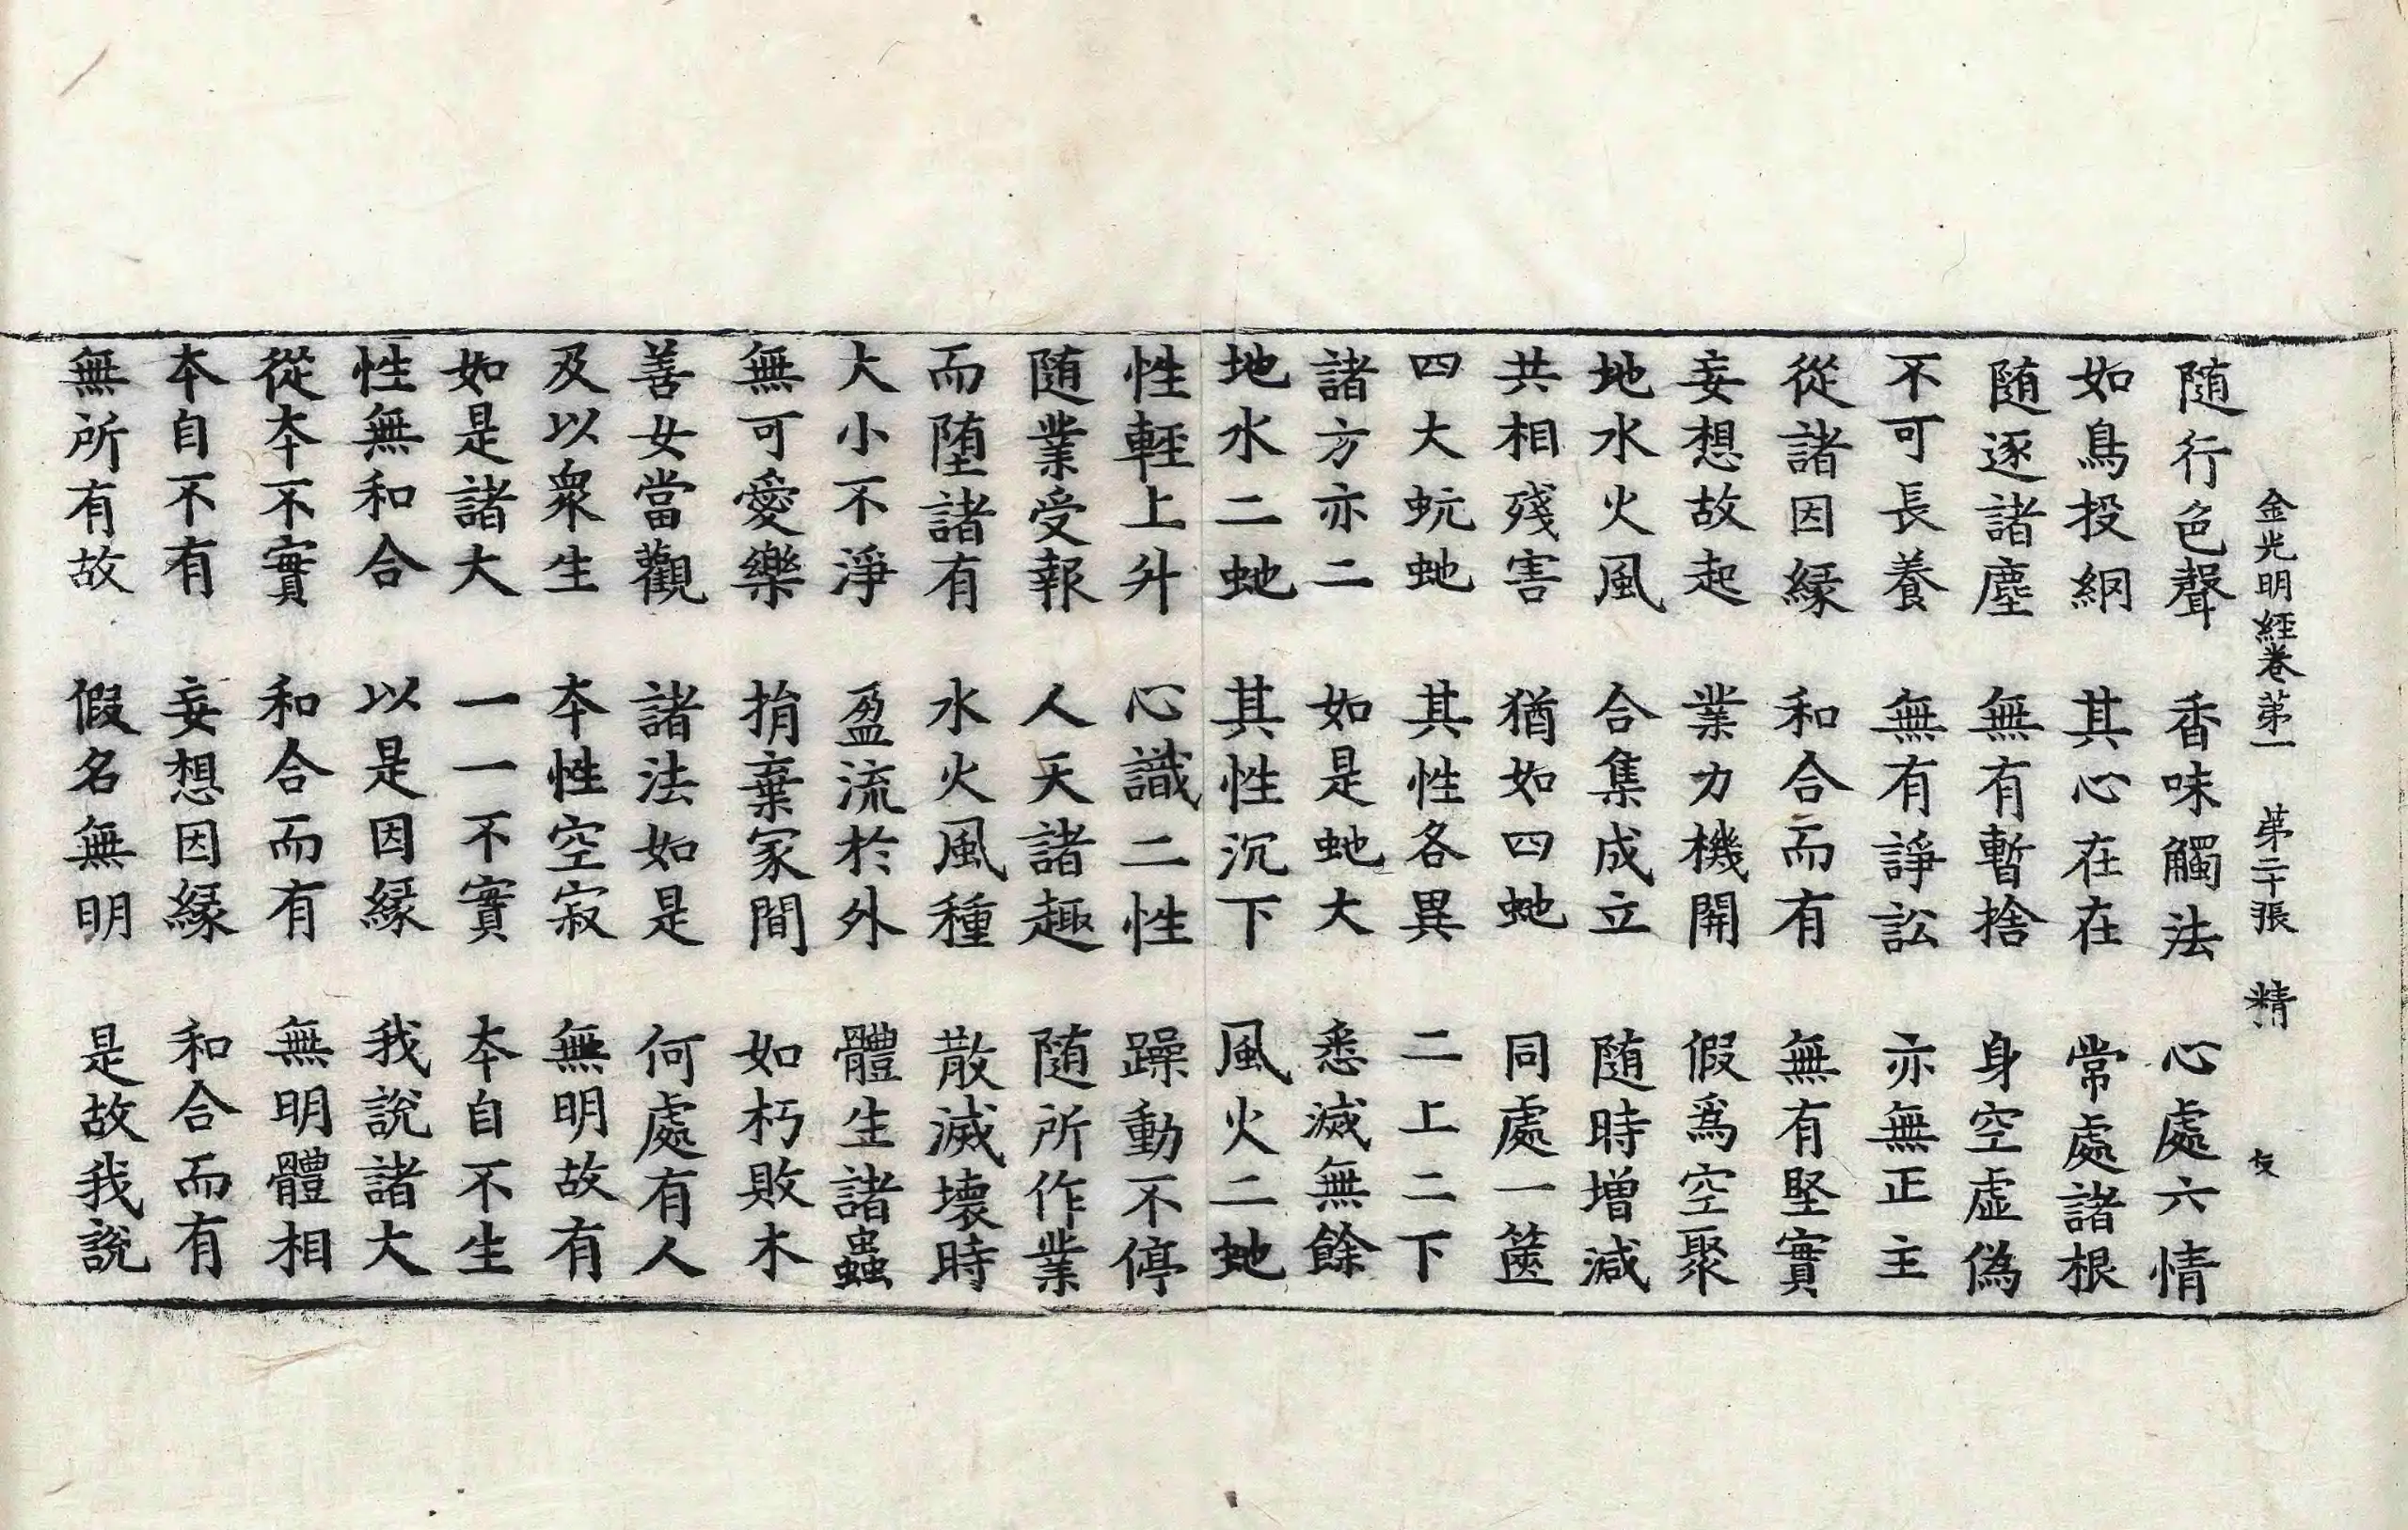 金光明經卷苐一　苐二十張　精　友
随行色聲　香味觸法　心處六情
如鳥投網　其心在在　常處諸根
随逐諸塵　無有暫捨　身空虛偽
不可長養　無有諍訟　亦無正主
從諸因縁　和合而有　無有堅實
妄想故起　業力機開　假爲空聚
地水火風　合集成立　随時增減
共相殘害　猶如四虵　同處一篋
四大蚖虵　其性各異　二上二下
諸方亦二　如是虵大　悉滅無餘
地水二虵　其性沉下　風火二虵
性輕上升　心識二性　躁動不停
随業受報　人天諸趣　随所作業
而堕諸有　水火風種　散滅壞時
大小不淨　盈流於外　體生諸蟲
無可愛樂　捐棄冢間　如朽敗木
善女當觀　諸法如是　何處有人
及以衆生　本性空寂　無明故有
如是諸大　一一不實　本自不生
性無和合　以是因縁　我說諸大
從本不實　和合而有　無明體相
本自不有　妄想因縁　和合而有
無所有故　假名無明　是故我說